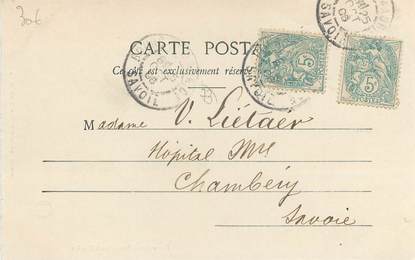 30€
CARTE POSTA
Ce côté est exclusivement réservé
SAVOIE
5
5
Madame V. Liétaer
Hôpital Mre
Chambéry
Savoie